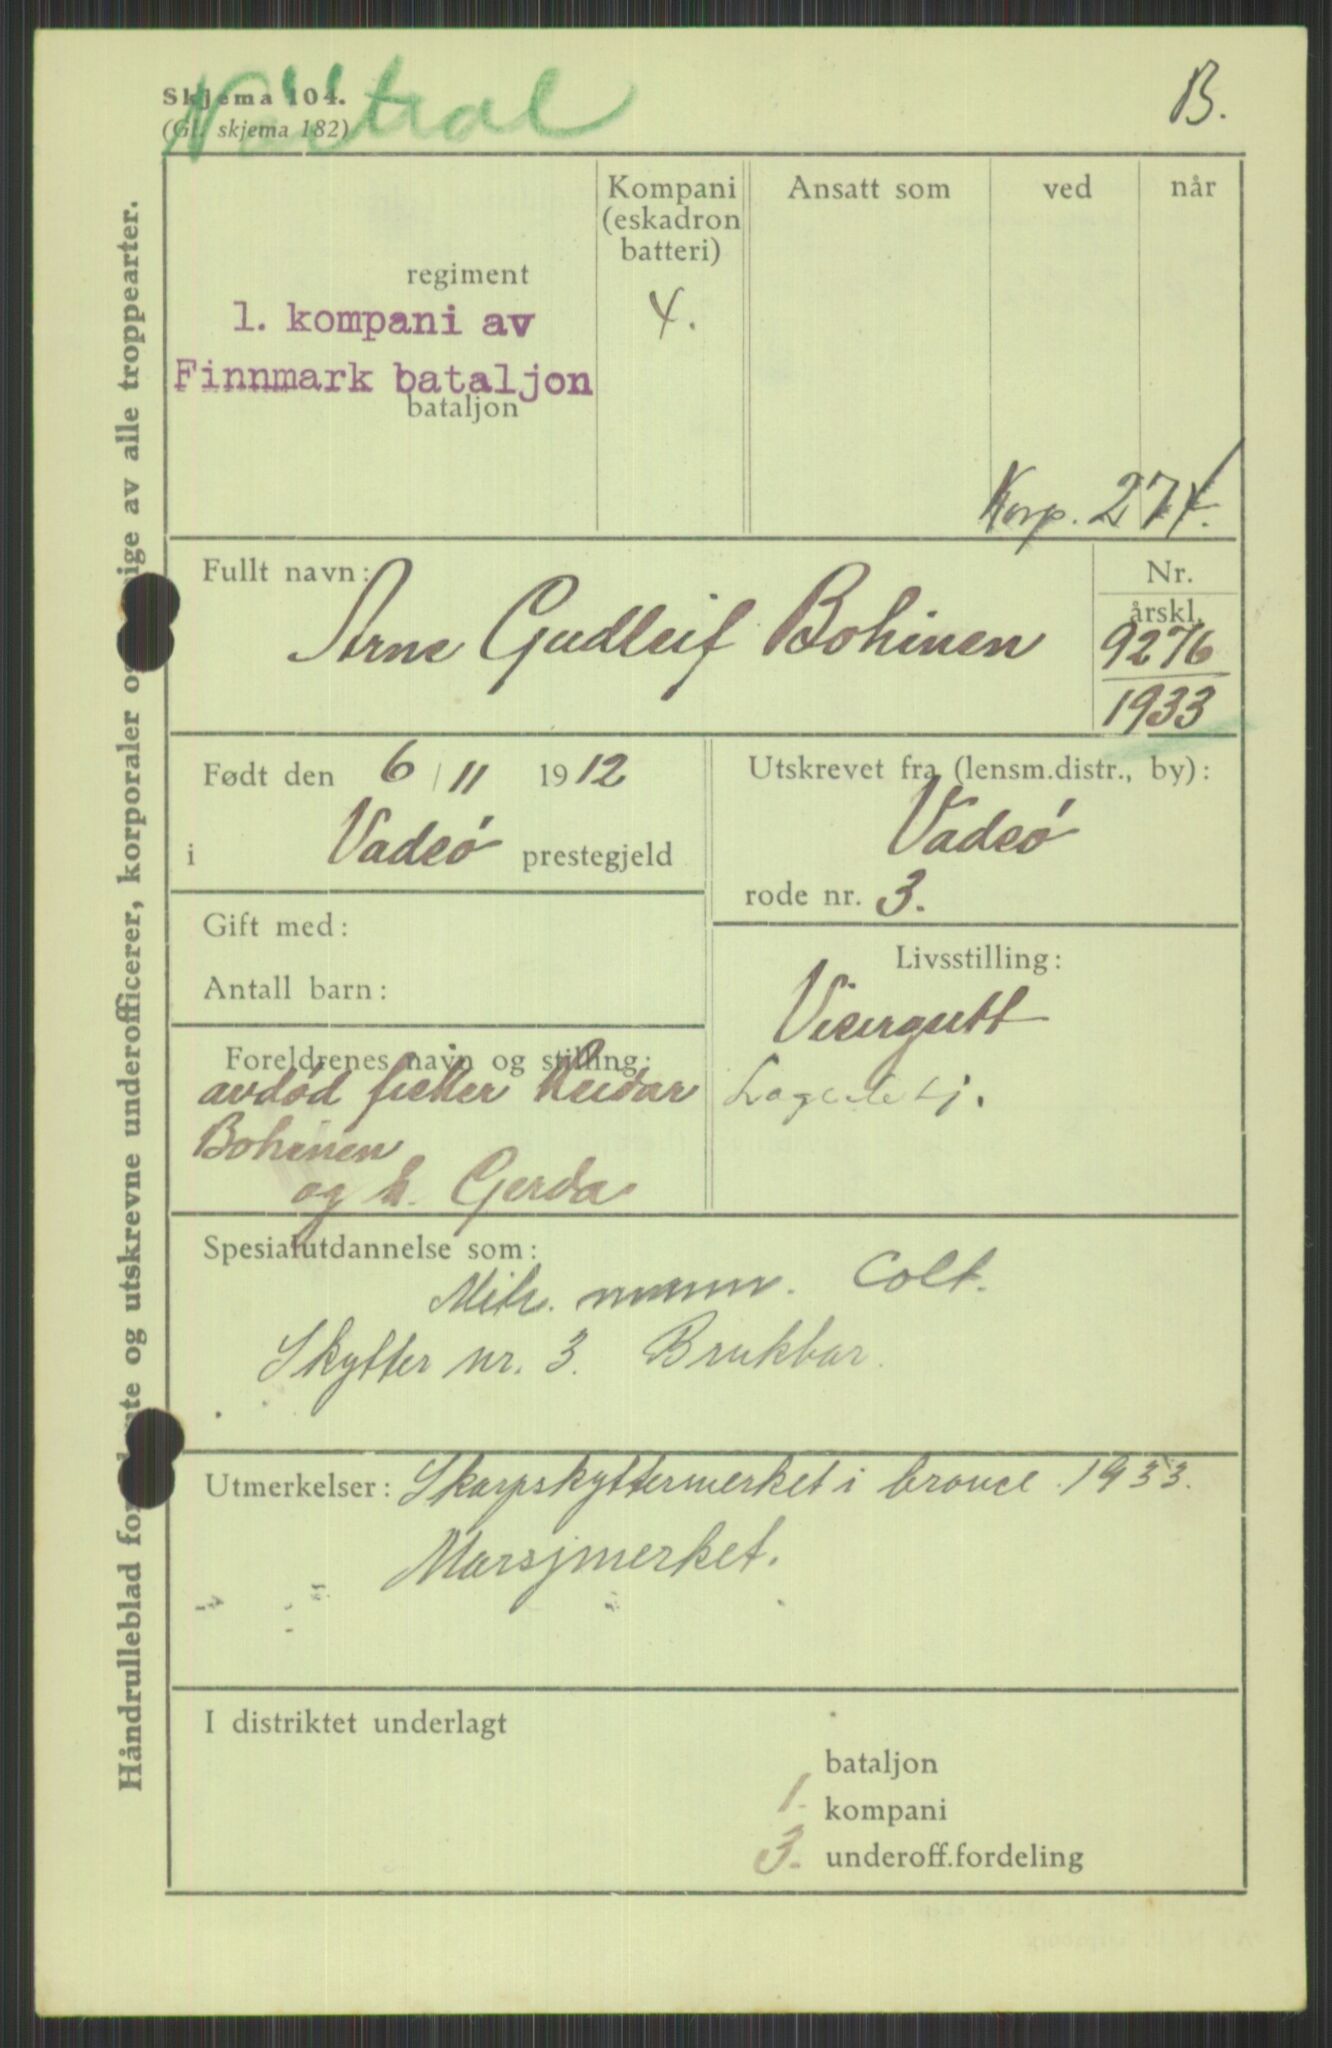 Skjema 104.
(Gl. skjema 182)
Nøitral
B.
Håndrulleblad for
te og utskrevne underofficerer, korporaler o
ige av alle troppearter.
Kompani
(eskadron
batteri)
Ansatt som
ved
når
regiment
1. kompani av
Finnmark bataljon
bataljon
4.
Korp. 274.
Fullt navn:
Arne Gudleif Bohinen
Nr.
årskl.
9276
1933
Født den 6/11 1912
i Vadsø prestegjeld
Utskrevet fra (lensm.distr., by):
Vadsø
rode nr. 3.
Gift med:
Antall barn:
Livsstilling:
Visergutt
Foreldrenes navn og stilling:
avdød fisker Reidar
Bohinen
og h. Gerda
Spesialutdannelse som:
Mitr. mann. Colt.
Skytter nr. 3. Brukbar.
Utmerkelser: Skarpskyttermerket i bronce 1933.
Marsjmerket.
I distriktet underlagt
bataljon
1. kompani
3. underoff.fordeling